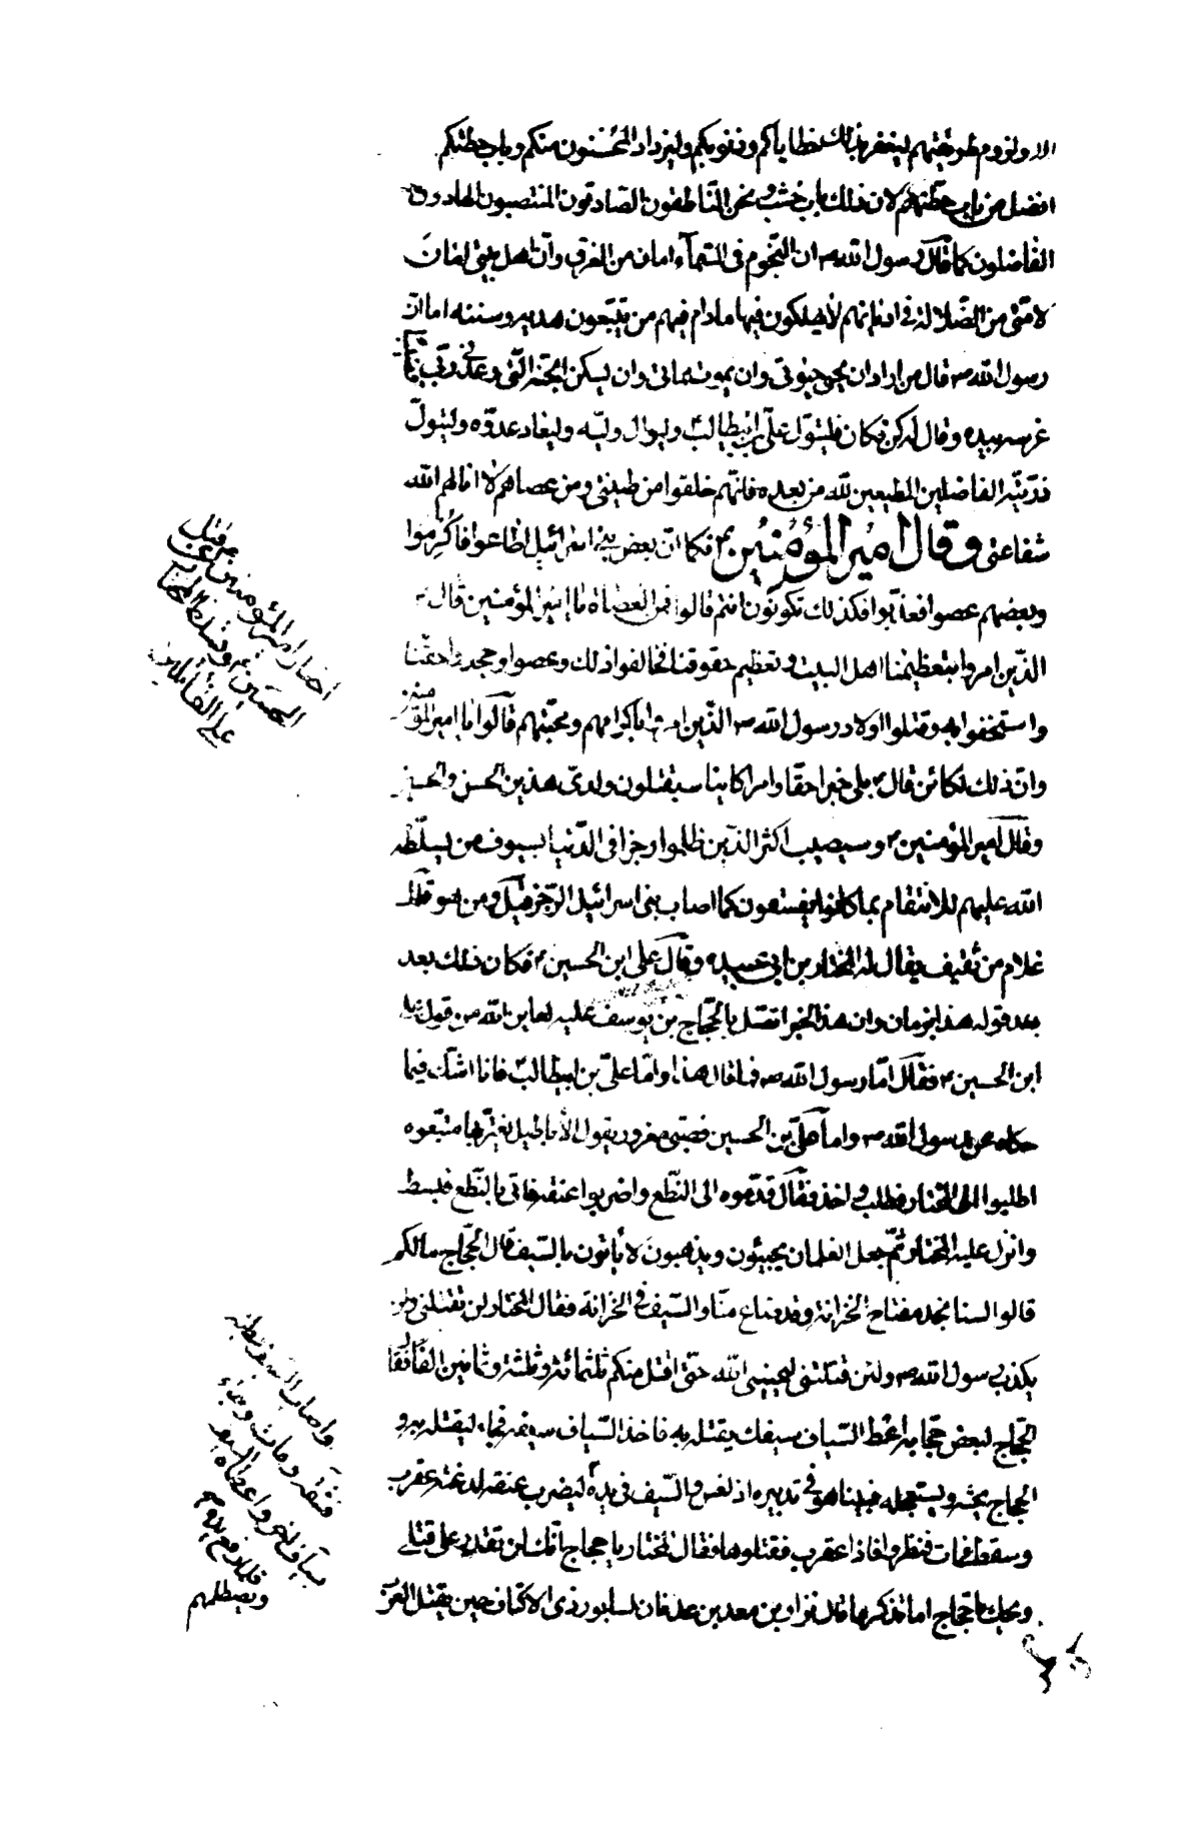 ولزوم طريقتهم ليغفر بذلك خطاياكم وذنوبكم وليزداد المحسنون منكم وباب حطتكم
افضل من باب حطتهم لان ذلك باب خشب ونحن الناطقون الصادقون المنتصبون الهادون
الفاضلون كما قال رسول الله ص ان النجوم فى السمآء امان من الغرق وان اهل بيتى امان
لامتى من الضلالة فى اديانهم لا يهلكون فيها مادام فيهم من يتبعون هديه وسننه اما ان
رسول الله ص قال من اراد ان يحيى حيوتى وان يموت مماتى وان يسكن الجنة التى وعدنى ربى
غرسه بيده وقال له كن فكان فليتول على بن ابيطالب ع وليوال وليه وليعاد عدوه وليتول
ذريته الفاضلين المطيعين لله من بعده فانهم خلقوا من طينتى ومن عصاهم لا انالهم الله
شفاعتى وقال امير المؤمنين ع فكما ان بعض بنى اسرائيل اطاعوا فاكرموا
وبعضهم عصوا فعذبوا فكذلك تكونون انتم قالوا فمن العصاة يا امير المؤمنين قال ع
الذين امروا بتعظيمنا اهل البيت وتعظيم حقوقنا فخالفوا ذلك وعصوا وجحدوا حقنا
واستخفوا به وقتلوا اولاد رسول الله ص الذين امروا باكرامهم ومحبتهم قالوا يا امير المؤمنين
وان ذلك لكائن قال ع بلى خبرا حقا وامرا كاينا سيقتلون ولدى هذين الحسن والحسين
وقال امير المؤمنين ع وسيصيب اكثر الذين ظلموا رجزا فى الدنيا بسيوف من يسلطه
الله عليهم للانتقام بما كانوا يفسقون كما اصاب بنى اسرائيل الرجز قيل ومن هو قال
غلام من ثقيف يقال له المختار بن ابى عبيده وقال على ابن الحسين ع فكان ذلك بعد
بعد قوله هذا بزمان وان هذا الخبر اتصل بالحجاج بن يوسف عليه لعاين الله من قول على
ابن الحسين ع فقال اما رسول الله ص فما قال هذا واما على بن ابيطالب ع فانا اشك فيما
حكاه عن رسول الله ص واما على بن الحسين فصبى مغرور يقول الاباطيل يغتر بها متبعوه
اطلبوا الى المختار فطلب واخذ فقال قدموه الى النطع واضربوا عنقه فاتى بالنطع فبسط
وانزل عليه المختار ثم جعل الغلمان يجيئون ويذهبون لا يأتون بالسيف قال الحجاج مالكم
قالوا لسنا نجد مفتاح الخزانة وقد ضاع منا والسيف فى الخزانة فقال المختار لن تقتلنى ولن
يكذب رسول الله ص ولئن قتلتنى ليحيينى الله حتى اقتل منكم ثلثمائة وثلثة وثمانين الفا فقال
الحجاج لبعض حجابه اعط السياف سيفك يقتله به فاخذ السياف سيفه فجاء ليقتله به و
الحجاج يحثه ويستعجله فبينا هو فى تدبيره اذ نعس والسيف فى يده ليضرب عنقه لدغته عقرب
وسقط فمات فنظروا فاذا عقرب فقتلوها فقال المختار يا حجاج انك لن تقدر على قتلى
ويحك يا حجاج اما تذكر ما قال نزار بن معد بن عدنان لسابور ذى الاكتاف حين يقتل العرب
اخبار امير المؤمنين ع عن قتل
الحسين ع وتسلط المختار
على القاتلين
واصاب السيف بطنه
فشقه ومات وجاء
بسياف اخر واعطاه السيف
فلما رفع يده